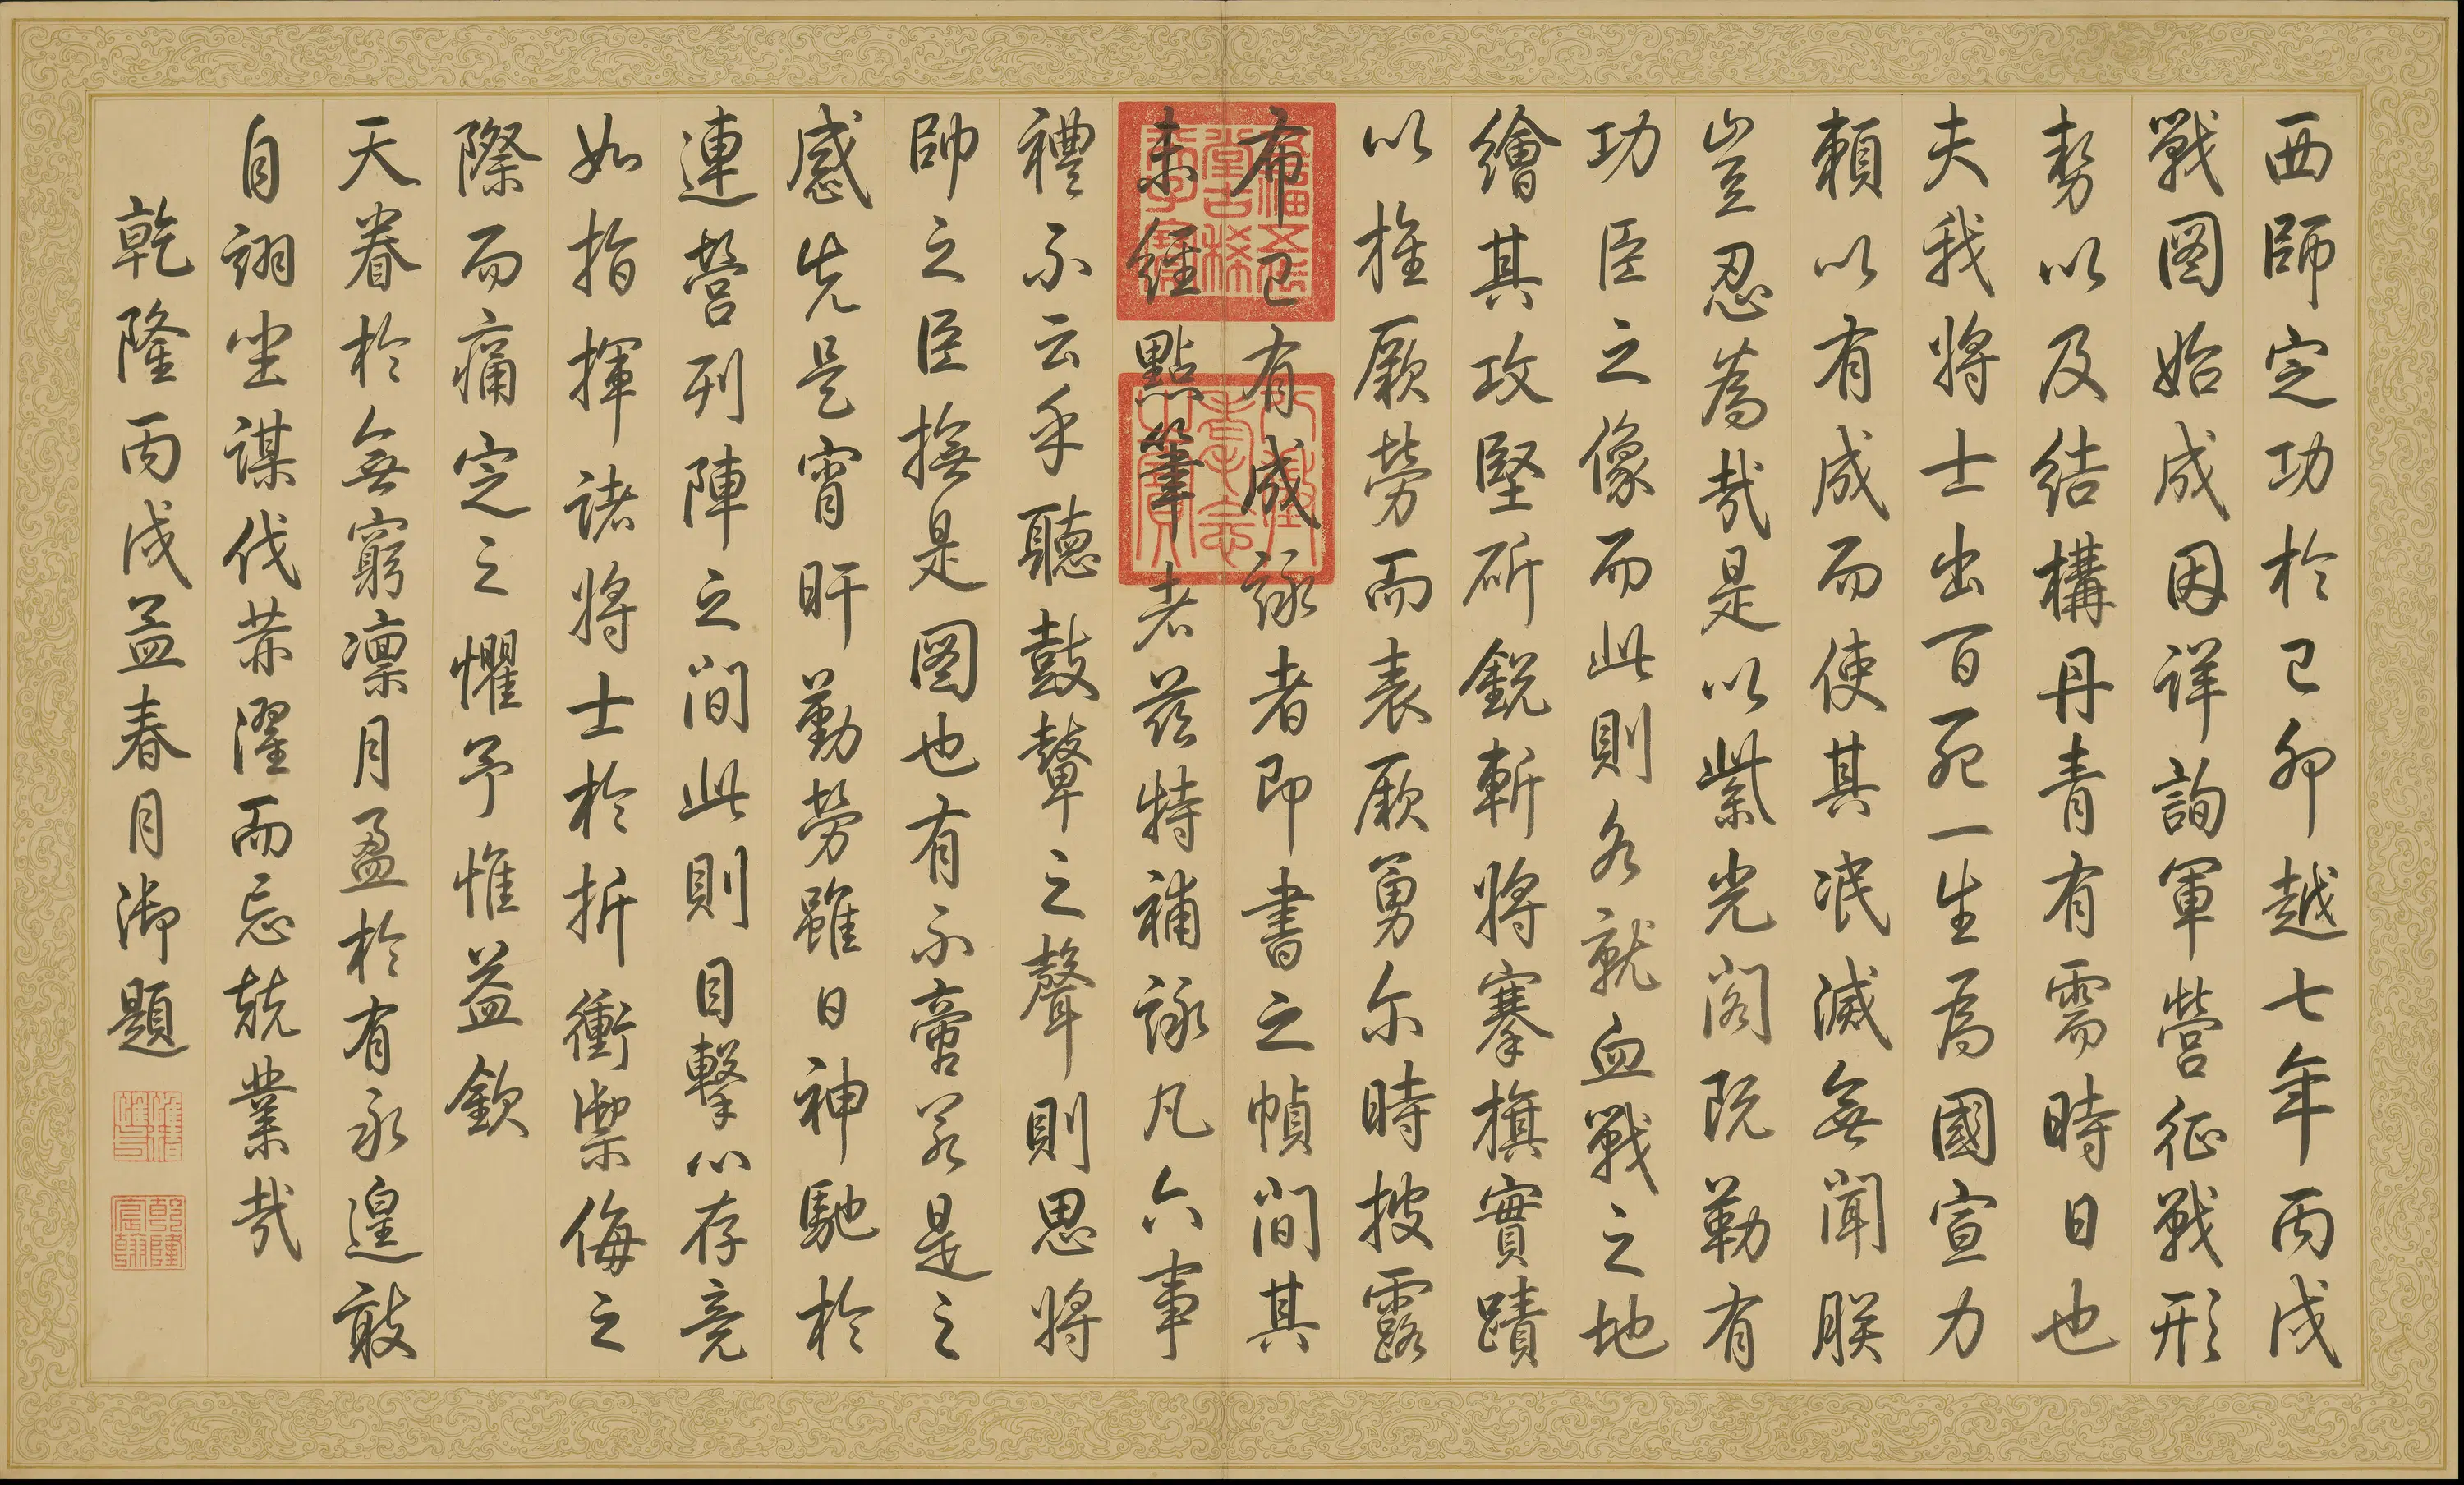 西師定功於己卯越七年丙戌
戰圖始成因詳詢軍營征戰形
勢以及結構丹青有需時日也
夫我將士出百死一生為國宣力
賴以有成而使其泯滅無聞朕
豈忍為哉是以紫光閣既勒有
功臣之像而此則各就血戰之地
繪其攻堅斫銳斬將搴旗實蹟
以旌厥勞而表厥勇尓時披露
布已有成詠者即書之幀間其
未經點筆者茲特補詠凡六事
禮不云乎聽鼓鼙之聲則思將
帥之臣撫是圖也有不啻若是之
感先是宵旰勤勞雖日神馳於
連營列陣之間此則目擊心存竟
如指揮諸將士於折衝禦侮之
際而痛定之懼予惟益欽
天眷於無窮凜月盈於有永遑敢
自詡坐謀伐荣濯而忘兢業哉
乾隆丙戌孟春月御題
五福五代堂古稀天子寶
八徵耄念之寶
乾隆宸翰